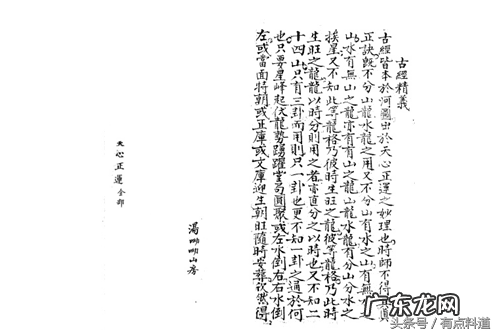 古經精義
古經皆本於河圖出於天心正運之妙理也時師不得其真
正訣既不分山龍水龍之用又不分山有水之山有無水之
山水有無山之龍亦有有山之龍山龍水龍有分山分水之
挨星又不知此等龍格乃彼時生旺之龍彼等龍格乃此時
生旺之龍龍以時分則用之者亦直分之以時也又不知二
十四山只有三卦而用則只一卦也更不知一卦之通於何
也只要星峰起伏龍勢踴躍堂局圓聚或左水倒右右水倒
左或當面特朝或正庫或文庫迎生朝旺隨時安葬欽然得
山房
天心正運 全部
广东龙网
头条号／有点料道